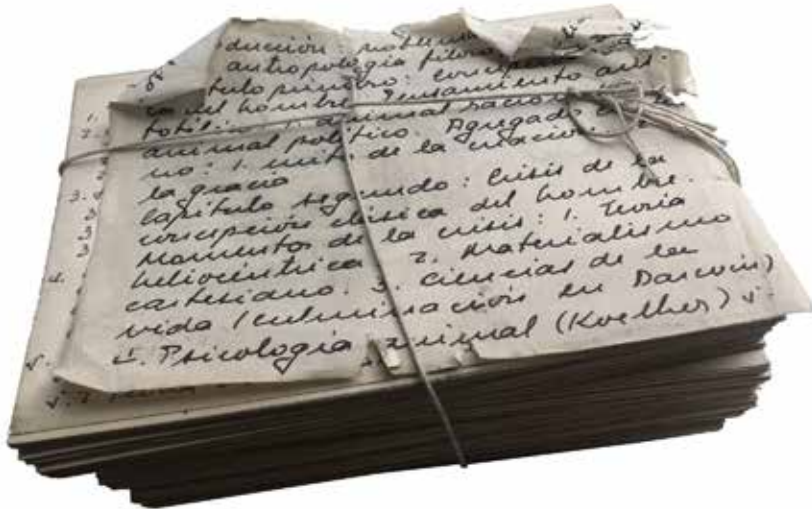 ducción: problema
antropología filosó
tulo primero: concepción
ca del hombre. Pensamiento aris-
totélico: 1. animal racio
animal político. Agregado
no: 1. mito de la creación.
la gracia
Capítulo segundo: Crisis de la
concepción clásica del hombre.
Momentos de la crisis: 1. Teoría
heliocéntrica 2. Materialismo
cartesiano. 3. Ciencias de la
vida (culminación en Darwin)
4. Psicología animal (Koelher) v